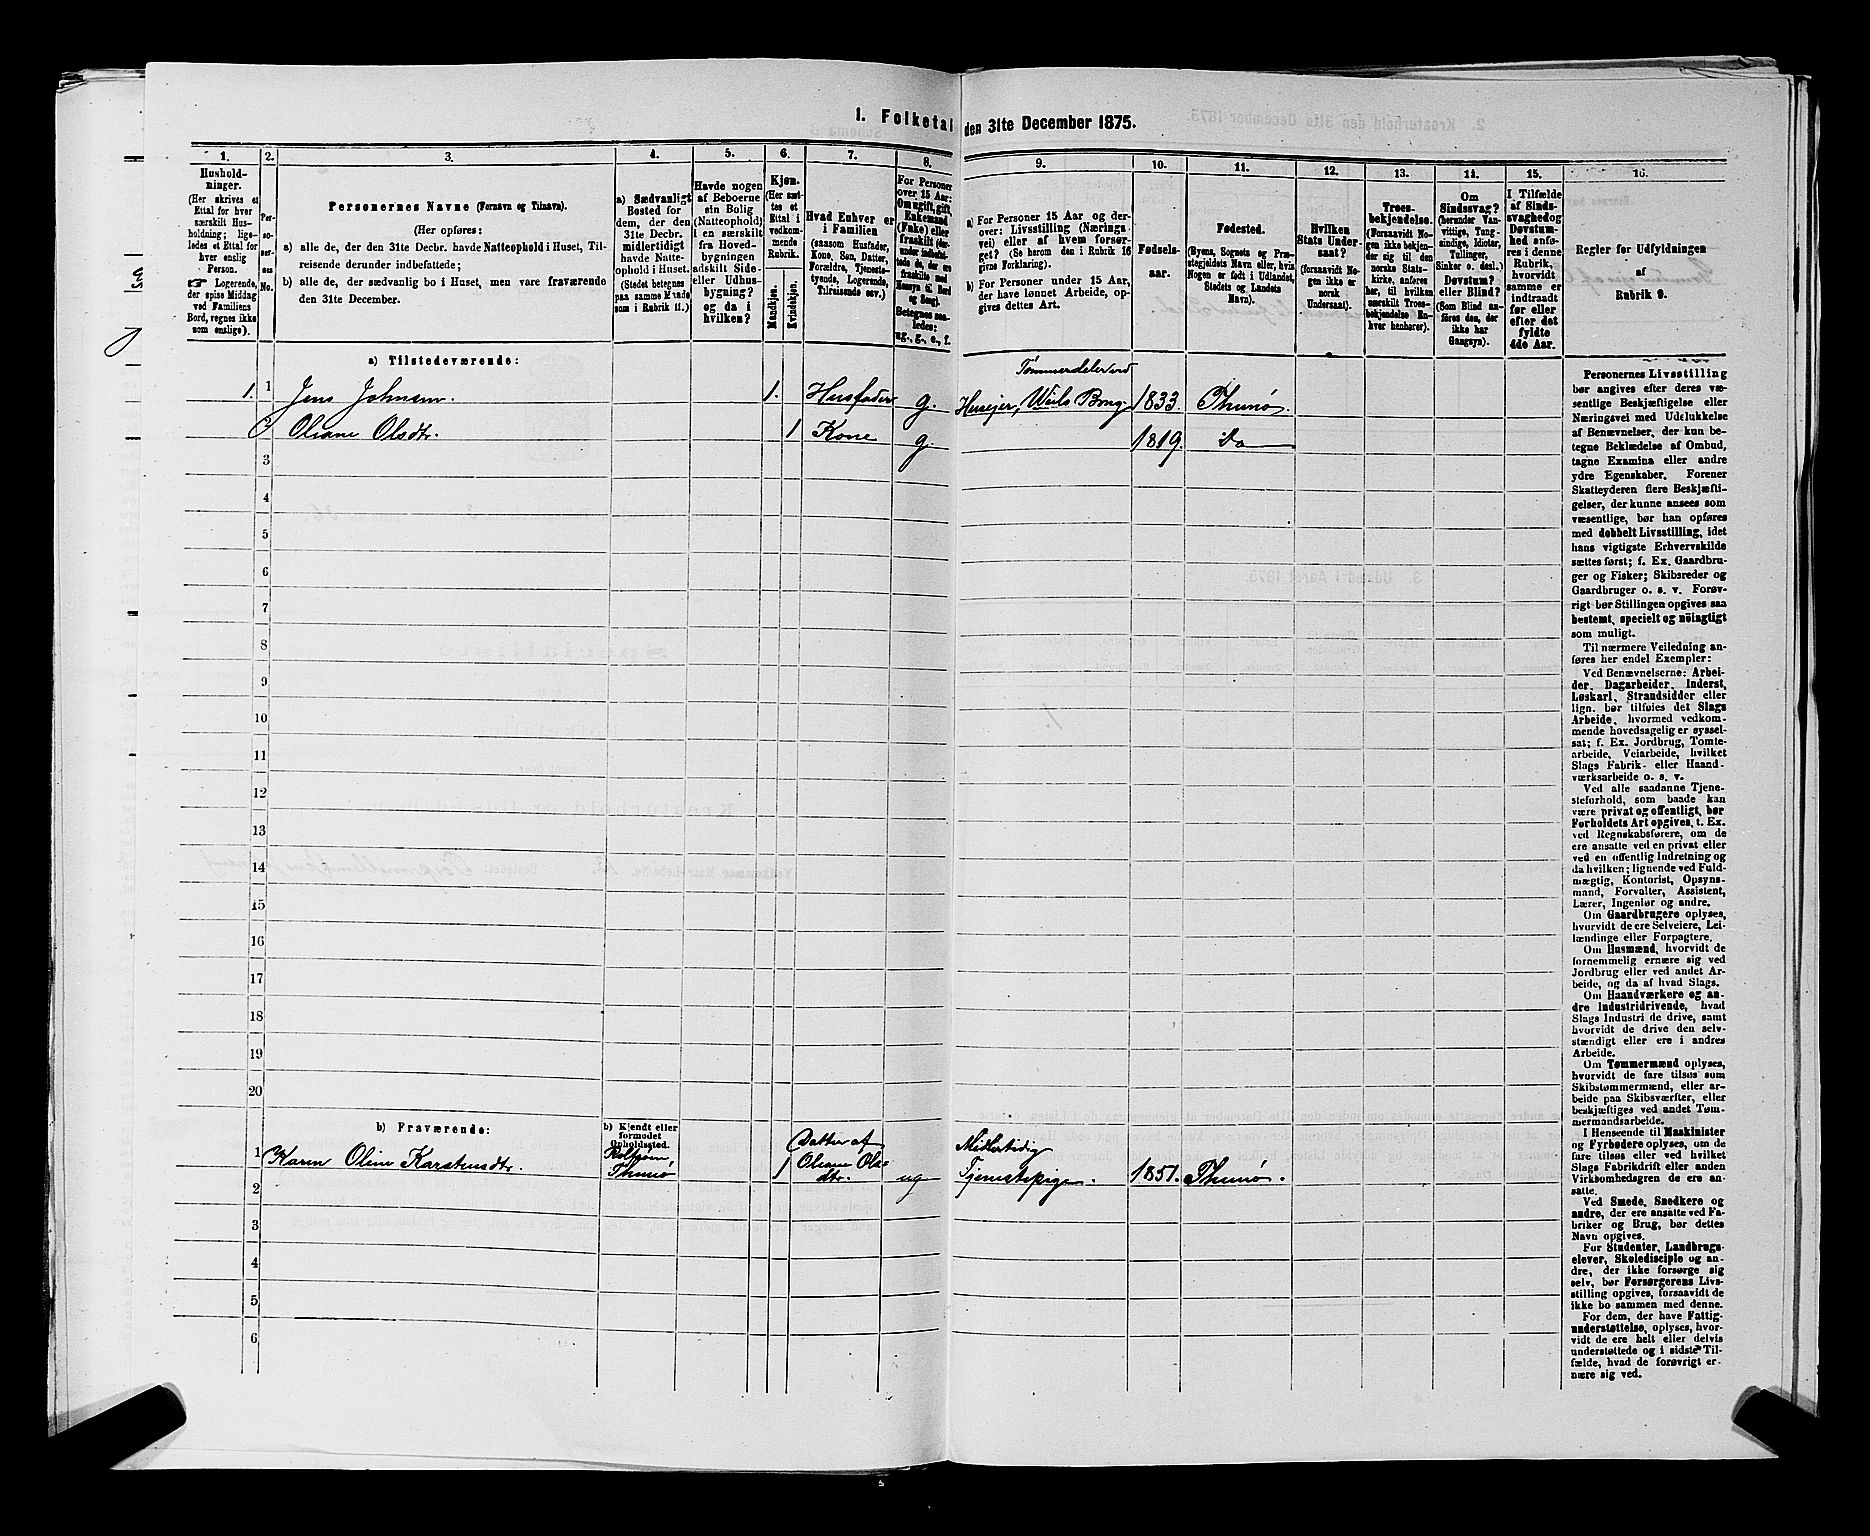 1. Folketal den 31te December 1875.
1. 2. 3. 4. 5. 6. 7. 8. 9. 10. 11. 12. 13. 14. 15. 16.
Hushold-
ninger.
(Her skrives et
Ettal for hver
særskilt Hus-
holdning; lige-
ledes et Ettal for
hver enslig
Person.
☞ Logerende,
der spise Middag
ved Familiens
Bord, regnes ikke
som enslige).
Per-
so-
ner-
nes
No.
Personernes Navne (Fornavn og Tilnavn).
(Her opføres:
a) alle de, der den 31te Decbr. havde Natteophold i Huset, Til-
reisende derunder indbefattede;
b) alle de, der sædvanlig bo i Huset, men vare fraværende
den 31te December.
a) Sædvanligt
Bosted for
dem, der den
31te Decbr.
midlertidigt
havde Natte-
ophold i Huset.
(Stedet betegnes
paa samme Maade
som i Rubrik 11.)
Havde nogen
af Beboerne
sin Bolig
(Natteophold)
i en særskilt
fra Hoved-
bygningen
adskilt Side-
eller Udhus-
bygning?
og da i
hvilken?
Kjøn.
(Her sæt-
tes et
Ettal i
vedkom-
mende
Rubrik.
Mandkjøn.
Kvindekjøn.
Hvad Enhver er
i Familien
(saasom Husfader,
Kone, Søn, Datter,
Forældre, Tjeneste-
tyende, Logerende,
Tilreisende osv.)
For Personer
over 15 Aar:
Om ugift, gift,
Enkemand
(Enke) eller
fraskilt
Betegnes saa-
ledes:
ug., g., e., f.
a) For Personer 15 Aar og der-
over: Livsstilling (Nærings-
vei) eller af hvem forsør-
get? (Se herom den i Rubrik 16
givne Forklaring).
b) For Personer under 15 Aar,
der have lønnet Arbeide, op-
gives dettes Art.
Fødsels-
aar.
Fødested.
(Byens, Sognets og Præ-
stegjeldets Navn eller, hvis
Nogen er født i Udlandet,
Stedets og Landets
Navn).
Hvilken
Stats Under-
saat?
(forsaavidt No-
gen ikke er
norsk
Undersaat).
Troes-
bekjendelse.
(Forsaavidt No-
gen ikke bekjen-
der sig til den
norske Stats-
kirke, anføres
her, til hvilken
særskilt Troes-
bekjendelse En-
hver henhører).
Om
Sindssvag?
(herunder Van-
vittige, Tung-
sindige, Idioter,
Tullinger,
Sinker o. desl.)
Døvstum?
eller Blind?
(Som Blind an-
føres den, der
ikke har
Gangsyn).
I Tilfælde
af Sinds-
svaghed og
Døvstum-
hed anfø-
res i denne
Rubrik,
hvorvidt
samme er
indtraadt
før eller
efter det
fyldte
4de Aar.
Regler for Udfyldningen
af
Rubrik 9.
a) Tilstedeværende:
1. 1 Jens Johnsen. 1. Husfader g. Tømmerdeler ved
Huseier, Weils Brug 1833. Thunø.
2 Oliane Olsdtr. 1 Kone g. 1819. Do
3
4
5
6
7
8
9
10
11
12
13
14
15
16
17
18
19
20
b) Fraværende:
b) Kjendt eller
formodet
Opholdssted.
1 Karen Oline Karstensdtr. Thunø 1 Datter af
Oliane Ols-
dtr. ug Midlertidig
Tjenestepige. 1851. Thunø.
2
3
4
5
6
Personernes Livsstilling
bør angives efter deres væ-
sentlige Beskjæftigelse eller
Næringsvei med Udelukkelse
af Benævnelser, der kun be-
tegne Beklædelse af Ombud,
tagne Examina eller andre
ydre Egenskaber. Forener
Skatteyderen flere Beskjæfti-
gelser, der kunne ansees som
væsentlige, bør han opføres
med dobbelt Livsstilling, idet
hans vigtigste Erhvervskilde
sættes først; f. Ex. Gaardbru-
ger og Fisker; Skibsreder og
Gaardbruger o. s. v. Forøv-
rigt bør Stillingen opgives saa
bestemt, specielt og nöiagtigt
som muligt.
Til nærmere Veiledning an-
føres her endel Exempler:
Ved Benævnelserne: Arbei-
der, Dagarbeider, Inderst,
Løskarl, Strandsidder eller
lign. bør tilføies det Slags
Arbeide, hvormed vedkom-
mende hovedsagelig er syssel-
sat; f. Ex. Jordbrug, Tomte-
arbeide, Veiarbeide, hvilket
Slags Fabrik- eller Haand-
værksarbeide o. s. v.
Ved alle saadanne Tjene-
steforhold, som baade kan
være privat og offentligt, bør
Forholdets Art opgives, t. Ex.
ved Regnskabsførere, om de
ere ansatte ved en privat eller
ved en offentlig Indretning og
da hvilken; lignende ved Fuld-
mægtig, Kontorist, Opsyns-
mand, Forvalter, Assistent,
Lærer, Ingeniør og andre.
Om Gaardbrugere oplyses,
hvorvidt de ere Selveiere, Lei-
lændinge eller Forpagtere.
Om Husmænd, hvorvidt de
fornemmelig ernære sig ved
Jordbrug eller ved andet Ar-
beide, og da af hvad Slags.
Om Haandværkere og an-
dre Industridrivende, hvad
Slags Industri de drive, samt
hvorvidt de drive den selv-
stændigt eller ere i andres
Arbeide.
Om Tømmermænd oplyses,
hvorvidt de fare tilsøs som
Skibstømmermænd, eller ar-
beide paa Skibsværfter, eller
beskjæftiges ved andet Tøm-
mermandsarbeide.
I Henseende til Maskinister
og Fyrbødere oplyses, om de
fare tilsøs eller ved hvilket
Slags Fabrikdrift eller anden
Virksomhedsgren de ere an-
satte.
Ved Smede, Snedkere og
andre, der ere ansatte ved Fa-
briker og Brug, bør dettes
Navn opgives.
For Studenter, Landbrugs-
elever, Skoledisciple og an-
dre, der ikke forsørge sig
selv, bør Forsørgerens Livs-
stilling opgives, forsaavidt de
ikke bo sammen med denne.
For dem, der have Fattig-
understøttelse, oplyses, hvor-
vidt de ere helt eller delvis
understøttede og i sidste Til-
fælde, hvad de forøvrigt er-
nære sig ved.